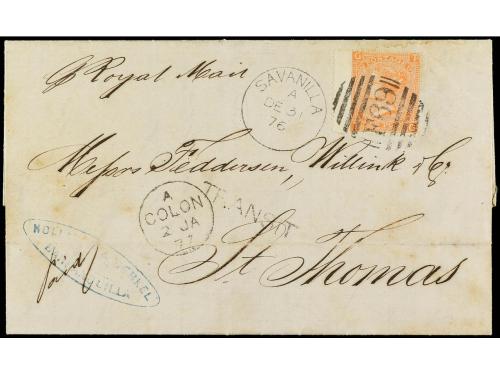 p Royal Mail
SAVANILLA
A
DE 31
76
POSTAGE
F69
Messrs Feddersen, Willink & Co.
A
COLON
2 JA
77
TRANSIT
St. Thomas
paid